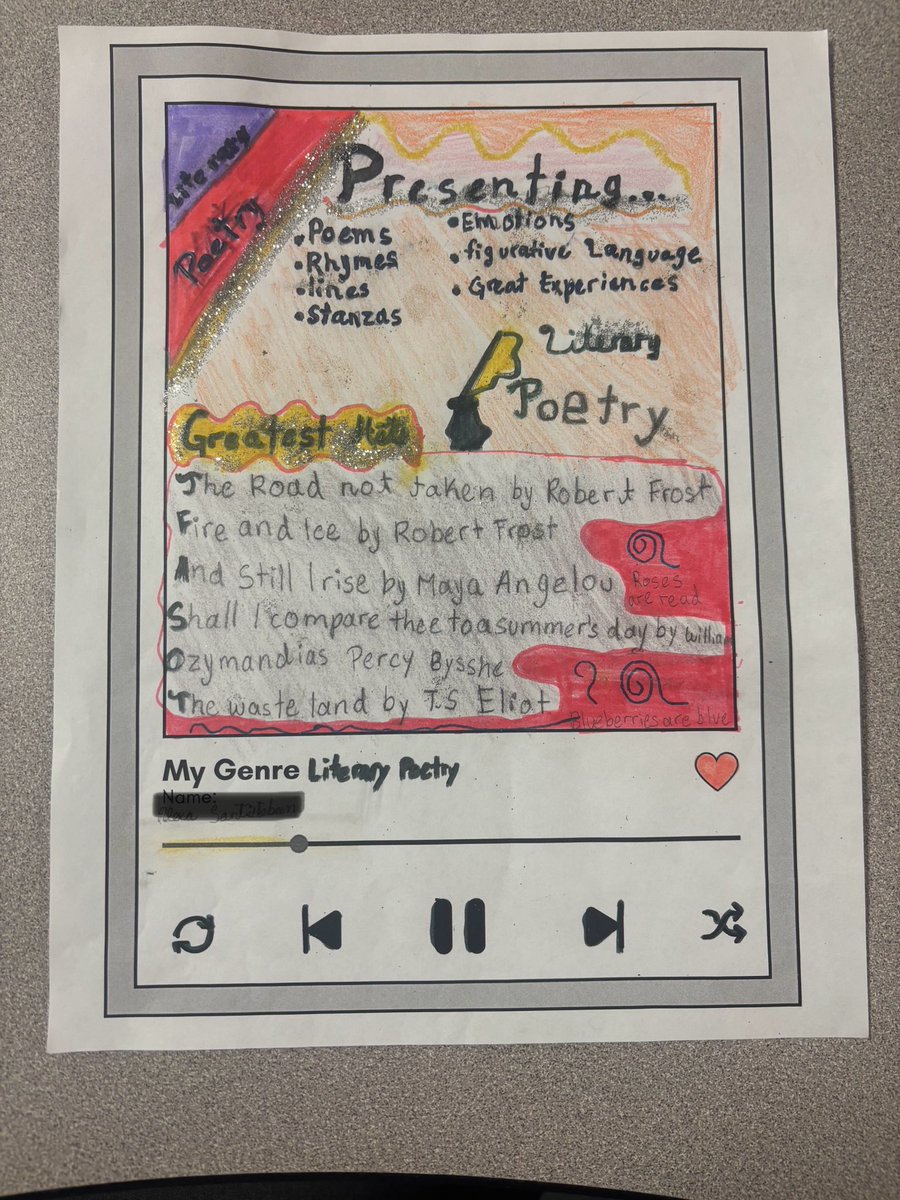 Literary
Poetry
Presenting...
• Poems
• Rhymes
• lines
• Stanzas
• Emotions
• figurative Language
• Great Experiences
Literary
Poetry
Greatest Hits
The Road not taken by Robert Frost
Fire and Ice by Robert Frost
And Still I rise by Maya Angelou
Shall I compare thee to a summer's day by William
Ozymandias Percy Bysshe
The waste land by T.S Eliot
Roses
are read
Blueberries are blue
My Genre Literary Poetry
Name: